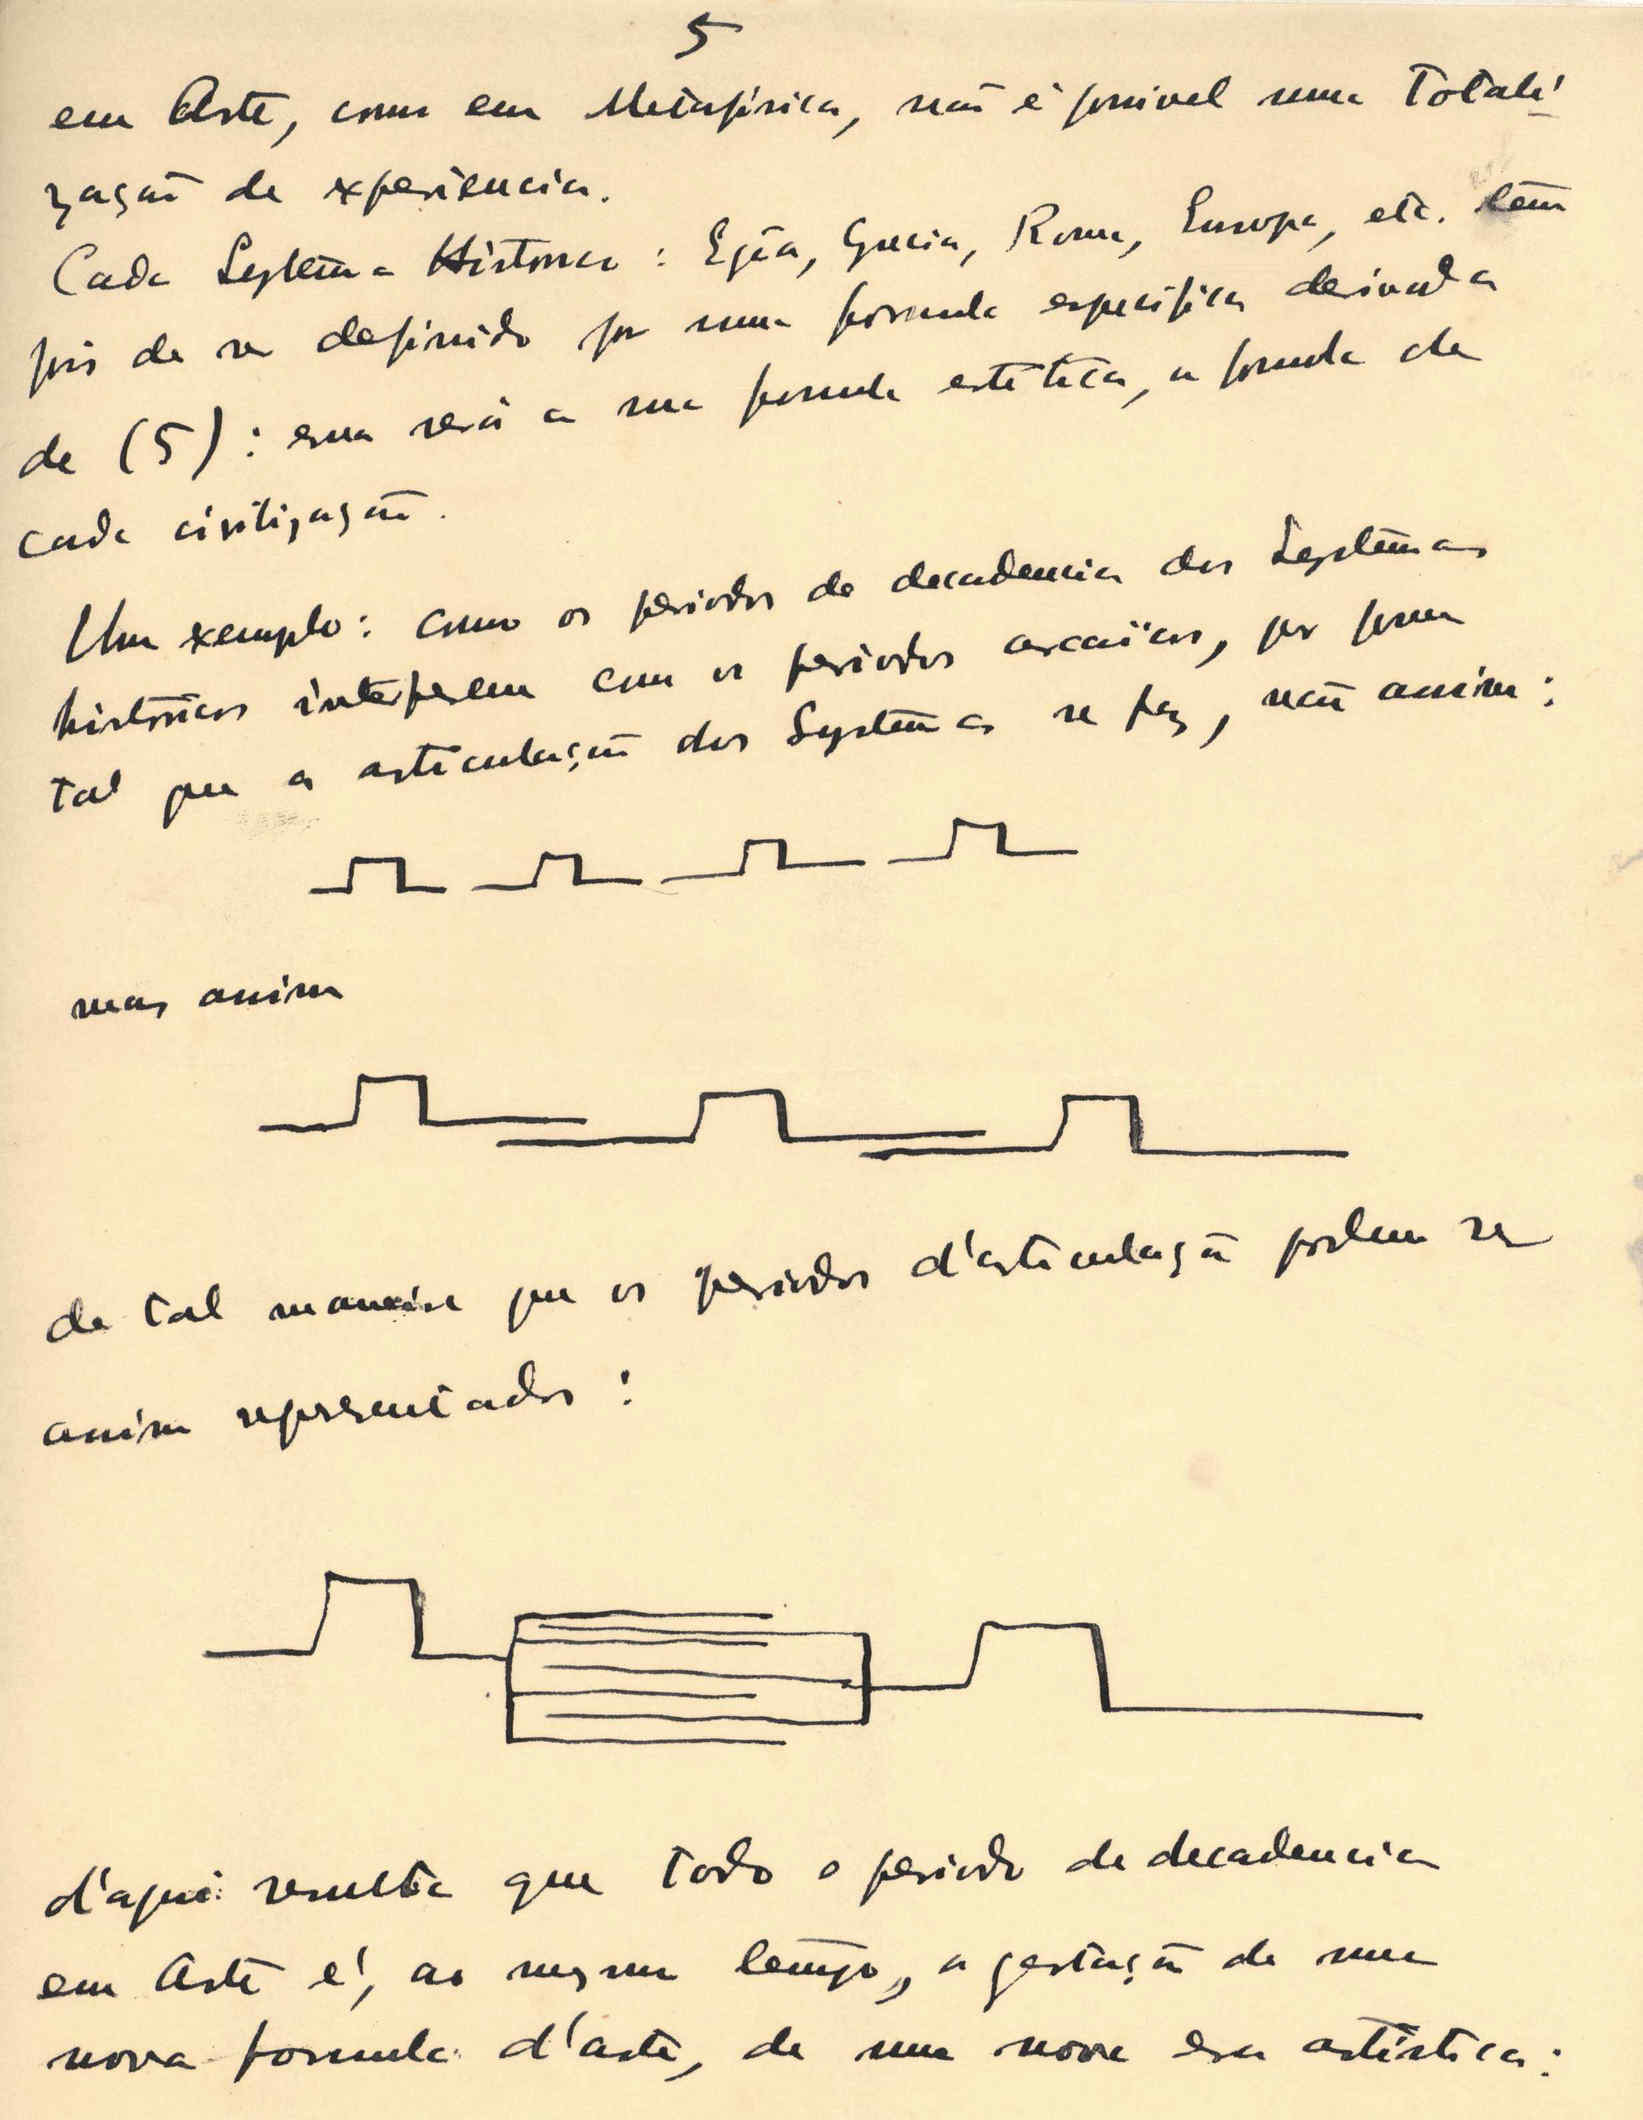 5
em Arte, como em Metafisica, não é possivel uma Totali-
zação de experiencia.
Cada Systema Historico : Egito, Grecia, Roma, Europa, etc. tem
pois de ser definido por uma formula especifica derivada
de (5) : essa será a sua formula estética, a formula de
cada civilização.
Um exemplo : como os periodos de decadencia dos Systemas
históricos interferem com os periodos arcaïcos, por forma
tal que a articulação dos Systemas se faz, não assim :
mas assim
de tal maneira que os periodos d'articulação podem ser
assim representados :
d'aqui resulta que todo o periodo de decadencia
em Arte é, ao mesmo tempo, a gestação de uma
nova formula d'arte, de uma nova era artística :